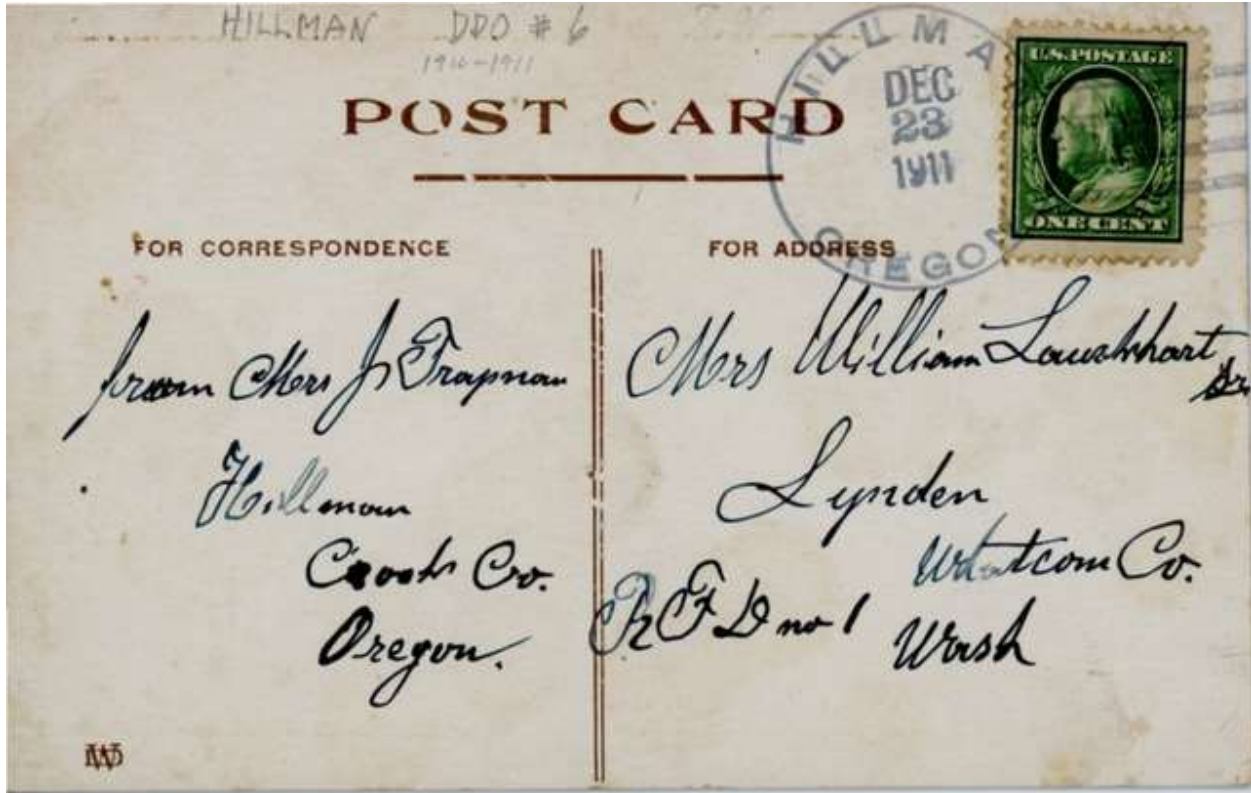 HILLMAN DDO # 6
1910-1911
POST CARD
HILLMA
DEC
23
1911
OREGON
U.S. POSTAGE
ONE CENT
FOR CORRESPONDENCE
FOR ADDRESS
from Mrs J Trapman
Hillman
Crook Co.
Oregon.
Mrs William
Sr.
Lynden
Whatcom Co.
R F D no 1
Wash